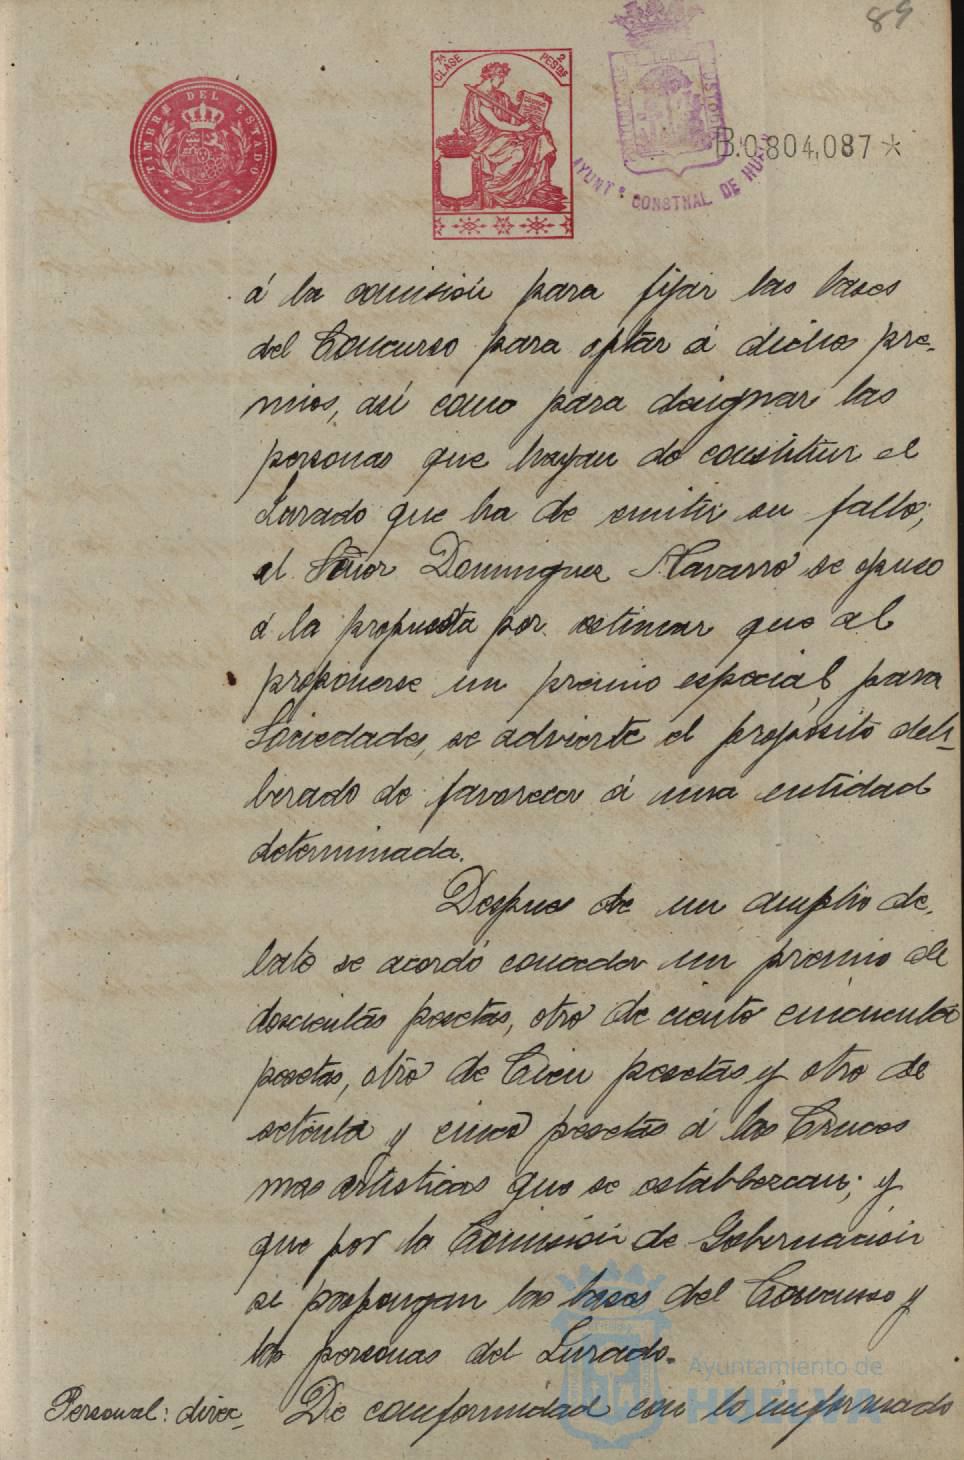 89
TIMBRE DEL ESTADO
7ª CLASE
2 PESTAS
AYUNTº CONSTNAL DE HUELVA
B.0804,087*
á la comisión para fijar las bases
del Concurso para optar á dichos pre-
mios, así como para designar las
personas que hayan de constituir el
Jurado que ha de emitir su fallo;
el Señor Dominguez Navarro se opuso
á la propuesta por estimar que al
proponerse un premio especial para
Sociedades, se advierte el propósito deli-
berado de favorecer á una entidad
determinada.
Despues de un amplio de-
bate se acordó conceder un premio de
doscientas pesetas, otro de ciento cincuenta
pesetas, otro de Cien pesetas y otro de
setenta y cinco pesetas á las Cruces
mas artisticas que se establezcan; y
que por la Comisión de Gobernación
se propongan las bases del Concurso y
las personas del Jurado.
Personal: direc-
De conformidad con lo informado
Ayuntamiento de
HUELVA